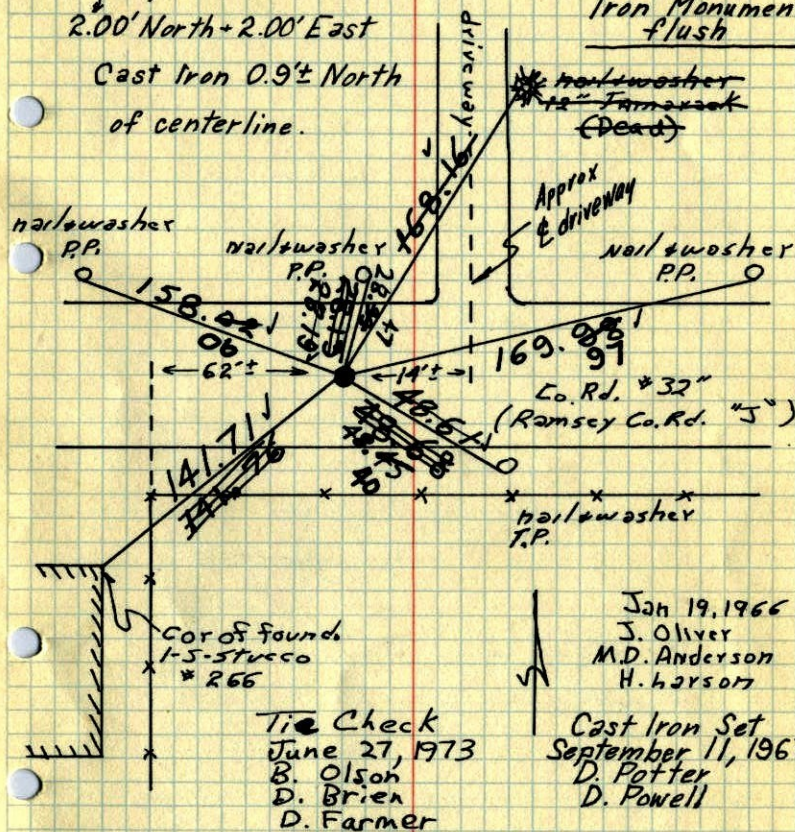 2.00' North + 2.00' East
Iron Monumen
flush
Cast Iron 0.9'± North
of centerline.
driveway
nail+washer
12" Tamarack
(Dead)
168.16
47
Approx
℄ driveway
nail+washer
P.P.
Nail+washer
P.P.
Nail+washer
P.P.
158.42
06
28.19
169.98
97
62'±
14'±
Co. Rd. #32"
(Ramsey Co. Rd. "J")
48.61
48.68
48.45
40
141.71
141.76
nail+washer
T.P.
Cor of found.
1-S-Stucco
#266
Jan 19, 1966
J. Oliver
M.D. Anderson
H. Larson
Tie Check
June 27, 1973
B. Olson
D. Brien
D. Farmer
Cast Iron Set
September 11, 196
D. Potter
D. Powell